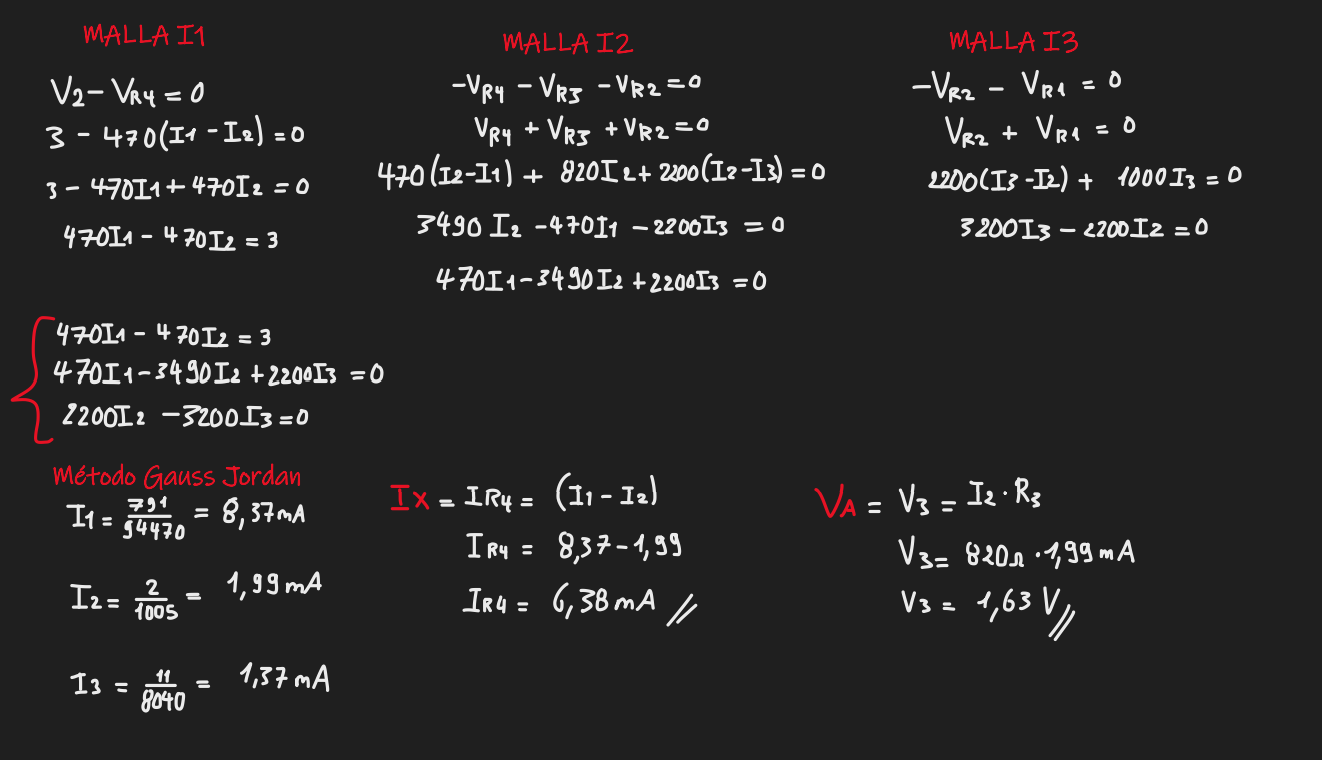 MALLA I1
V2 - VR4 = 0
3 - 470(I1 - I2) = 0
3 - 470I1 + 470I2 = 0
470I1 - 470I2 = 3
MALLA I2
-VR4 - VR3 - VR2 = 0
VR4 + VR3 + VR2 = 0
470(I2-I1) + 820I2 + 2200(I2-I3) = 0
3490 I2 - 470I1 - 2200I3 = 0
470I1 - 3490I2 + 2200I3 = 0
MALLA I3
-VR2 - VR1 = 0
VR2 + VR1 = 0
2200(I3-I2) + 1000I3 = 0
3200I3 - 2200I2 = 0
470I1 - 470I2 = 3
470I1 - 3490I2 + 2200I3 = 0
2200I2 - 3200I3 = 0
Método Gauss Jordan
I1 = 791/94470 = 8,37mA
I2 = 2/1005 = 1,99 mA
I3 = 11/8040 = 1,37 mA
Ix = IR4 = (I1 - I2)
IR4 = 8,37 - 1,99
IR4 = 6,38 mA //
VA = V3 = I2 · R3
V3 = 820Ω · 1,99 mA
V3 = 1,63 V //